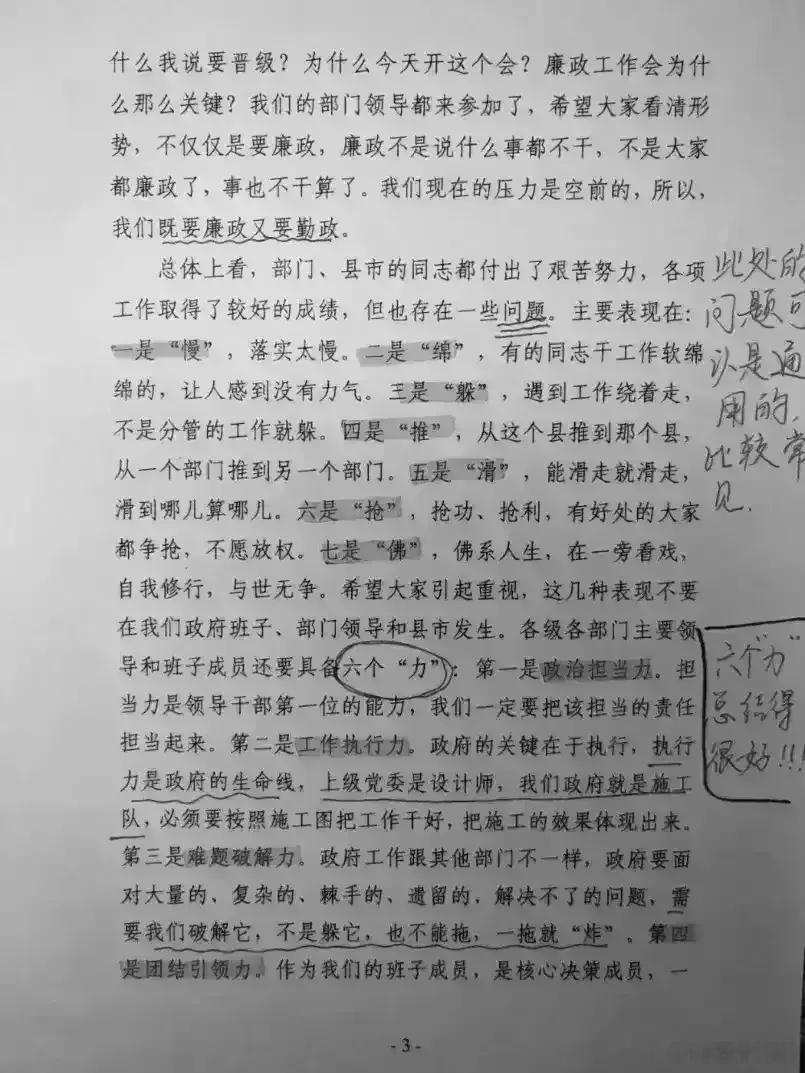 什么我说要晋级？为什么今天开这个会？廉政工作会为什
么那么关键？我们的部门领导都来参加了，希望大家看清形
势，不仅仅是要廉政，廉政不是说什么事都不干，不是大家
都廉政了，事也不干算了。我们现在的压力是空前的，所以，
我们既要廉政又要勤政。
总体上看，部门、县市的同志都付出了艰苦努力，各项
工作取得了较好的成绩，但也存在一些问题。主要表现在：
一是“慢”，落实太慢。二是“绵”，有的同志干工作软绵
绵的，让人感到没有力气。三是“躲”，遇到工作绕着走，
不是分管的工作就躲。四是“推”，从这个县推到那个县，
从一个部门推到另一个部门。五是“滑”，能滑走就滑走，
滑到哪儿算哪儿。六是“抢”，抢功、抢利，有好处的大家
都争抢，不愿放权。七是“佛”，佛系人生，在一旁看戏，
自我修行，与世无争。希望大家引起重视，这几种表现不要
在我们政府班子、部门领导和县市发生。各级各部门主要领
导和班子成员还要具备六个“力”：第一是政治担当力。担
当力是领导干部第一位的能力，我们一定要把该担当的责任
担当起来。第二是工作执行力。政府的关键在于执行，执行
力是政府的生命线，上级党委是设计师，我们政府就是施工
队，必须要按照施工图把工作干好，把施工的效果体现出来。
第三是难题破解力。政府工作跟其他部门不一样，政府要面
对大量的、复杂的、棘手的、遗留的，解决不了的问题，需
要我们破解它，不是躲它，也不能拖，一拖就“炸”。第四
是团结引领力。作为我们的班子成员，是核心决策成员，一
- 3 -
此处的
问题可
认是通
用的，
比较常
见.
六个“力”
总结得
很好!!!